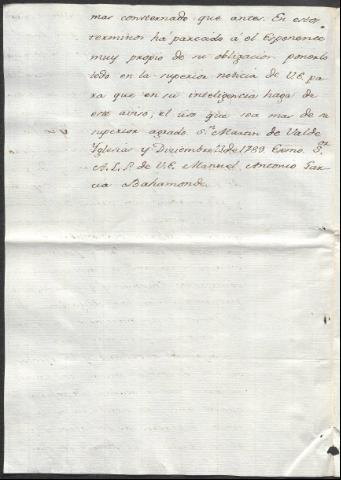 mas consternado que antes. En estos
terminos ha parecido á el Exponente
muy propio de su obligacion ponerlo
todo en la superior noticia de V.E. pa
ra que en su inteligencia haga de
este aviso, el uso que sea mas de su
superior agrado. Sn. Martin de Valde
Yglesias y Diciembre de 1789 Exmo. Sr.
A.L.P. de V.E. Manuel Antonio Gar
cia Bahamonde.